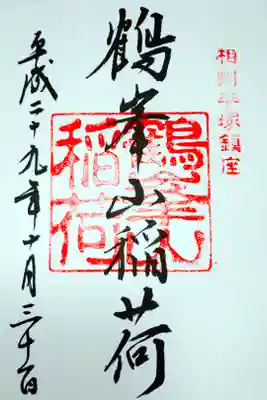 相州平塚鎮座
鶴峯山稲荷
鶴峯
稲荷
平成二十九年十月三十一日